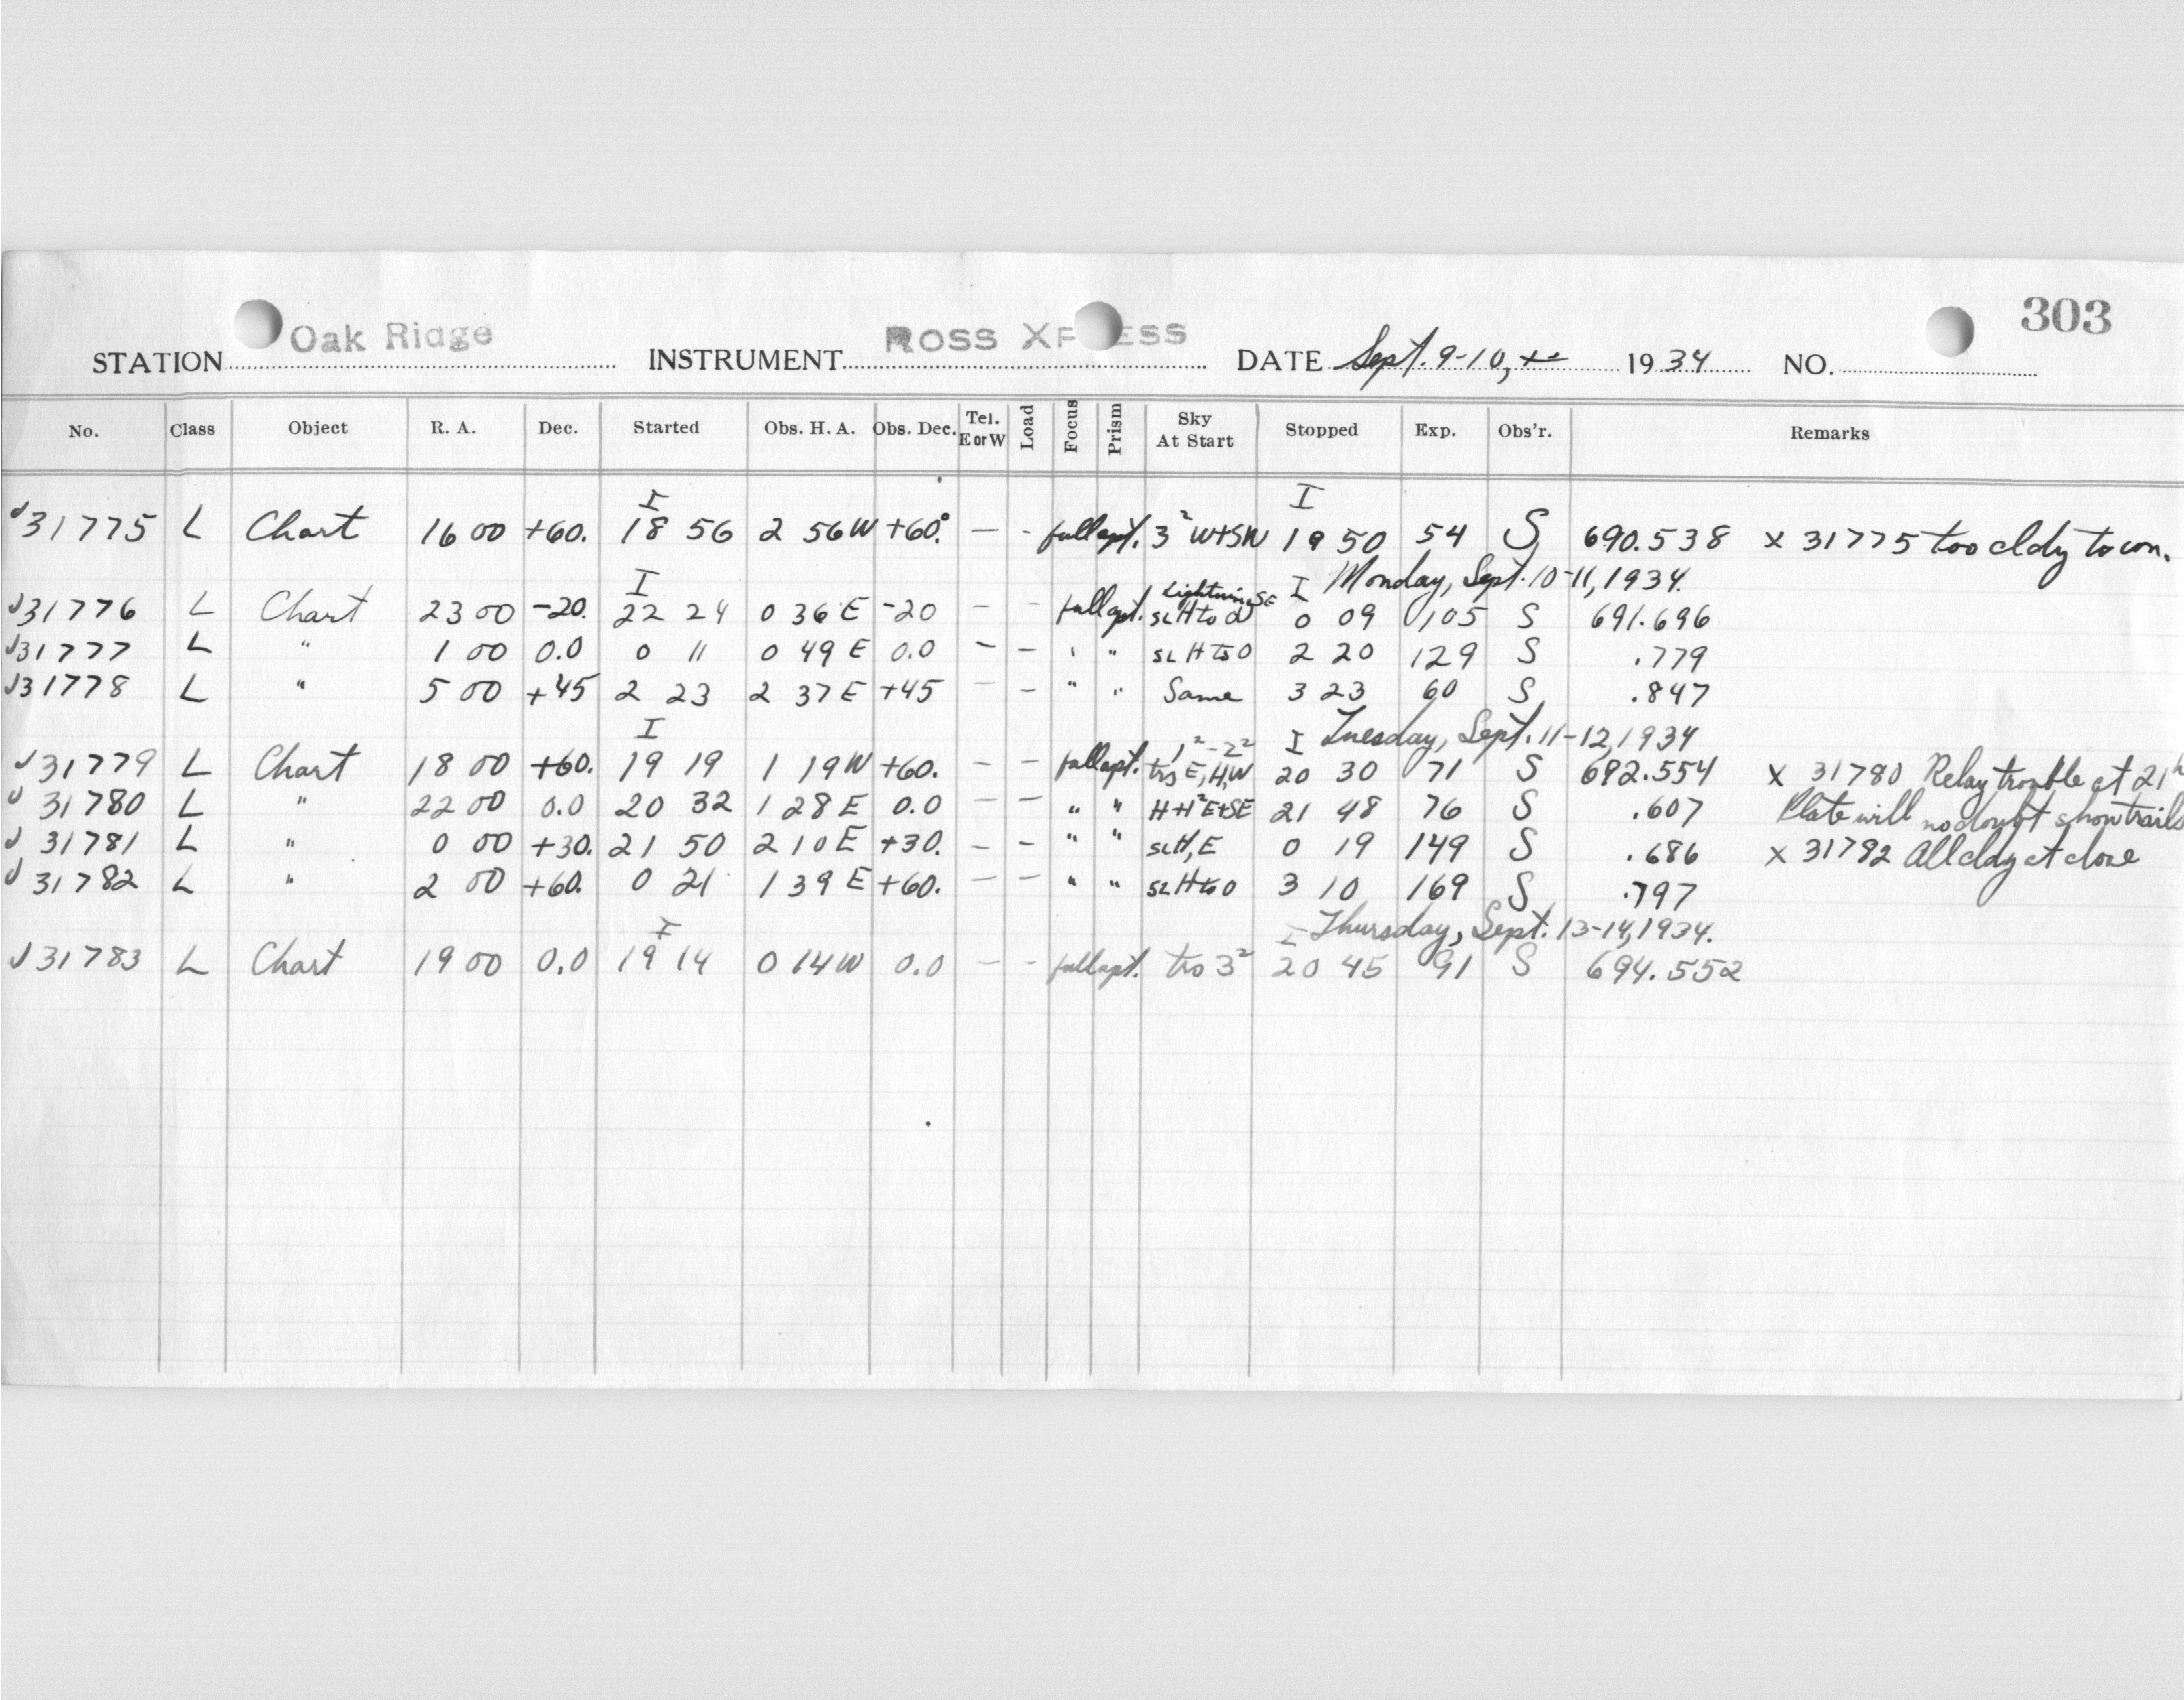 303
STATION Oak Ridge INSTRUMENT ROSS XPRESS DATE Sept. 9-10, 1934 NO.
No. Class Object R. A. Dec. Started Obs. H. A. Obs. Dec. Tel. E or W Load Focus Prism Sky At Start Stopped Exp. Obs'r. Remarks
I I
31775 L Chart 16 00 +60. 18 56 2 56 W +60.° — - full apt. 3² W+SW 19 50 54 S 690.538 x 31775 too cldy to con.
I I Monday, Sept. 10-11, 1934.
31776 L Chart 23 00 -20. 22 24 0 36 E -20 - - full apt. Lightning SE sl H to 0 09 105 S 691.696
31777 L " 1 00 0.0 0 11 0 49 E 0.0 - - " " sl H to 0 2 20 129 S .779
31778 L " 5 00 +45 2 23 2 37 E +45 - - " " Same 3 23 60 S .847
I I Tuesday, Sept. 11-12, 1934
31779 L Chart 18 00 +60. 19 19 1 19 W +60. - - full apt. 1²-2² trs E, H, W 20 30 71 S 692.554 x 31780 Relay trouble at 21h
31780 L " 22 00 0.0 20 32 1 28 E 0.0 - - " " H+H² E+SE 21 48 76 S .607 Plate will no doubt show trails
31781 L " 0 00 +30. 21 50 2 10 E +30. - - " " sl H, E 0 19 149 S .686 x 31782 All cldy at close
31782 L " 2 00 +60. 0 21 1 39 E +60. - - " " sl H to 0 3 10 169 S .797
I I Thursday, Sept. 13-14, 1934.
31783 L Chart 19 00 0.0 19 14 0 14 W 0.0 - - full apt. trs 3² 20 45 91 S 694.552